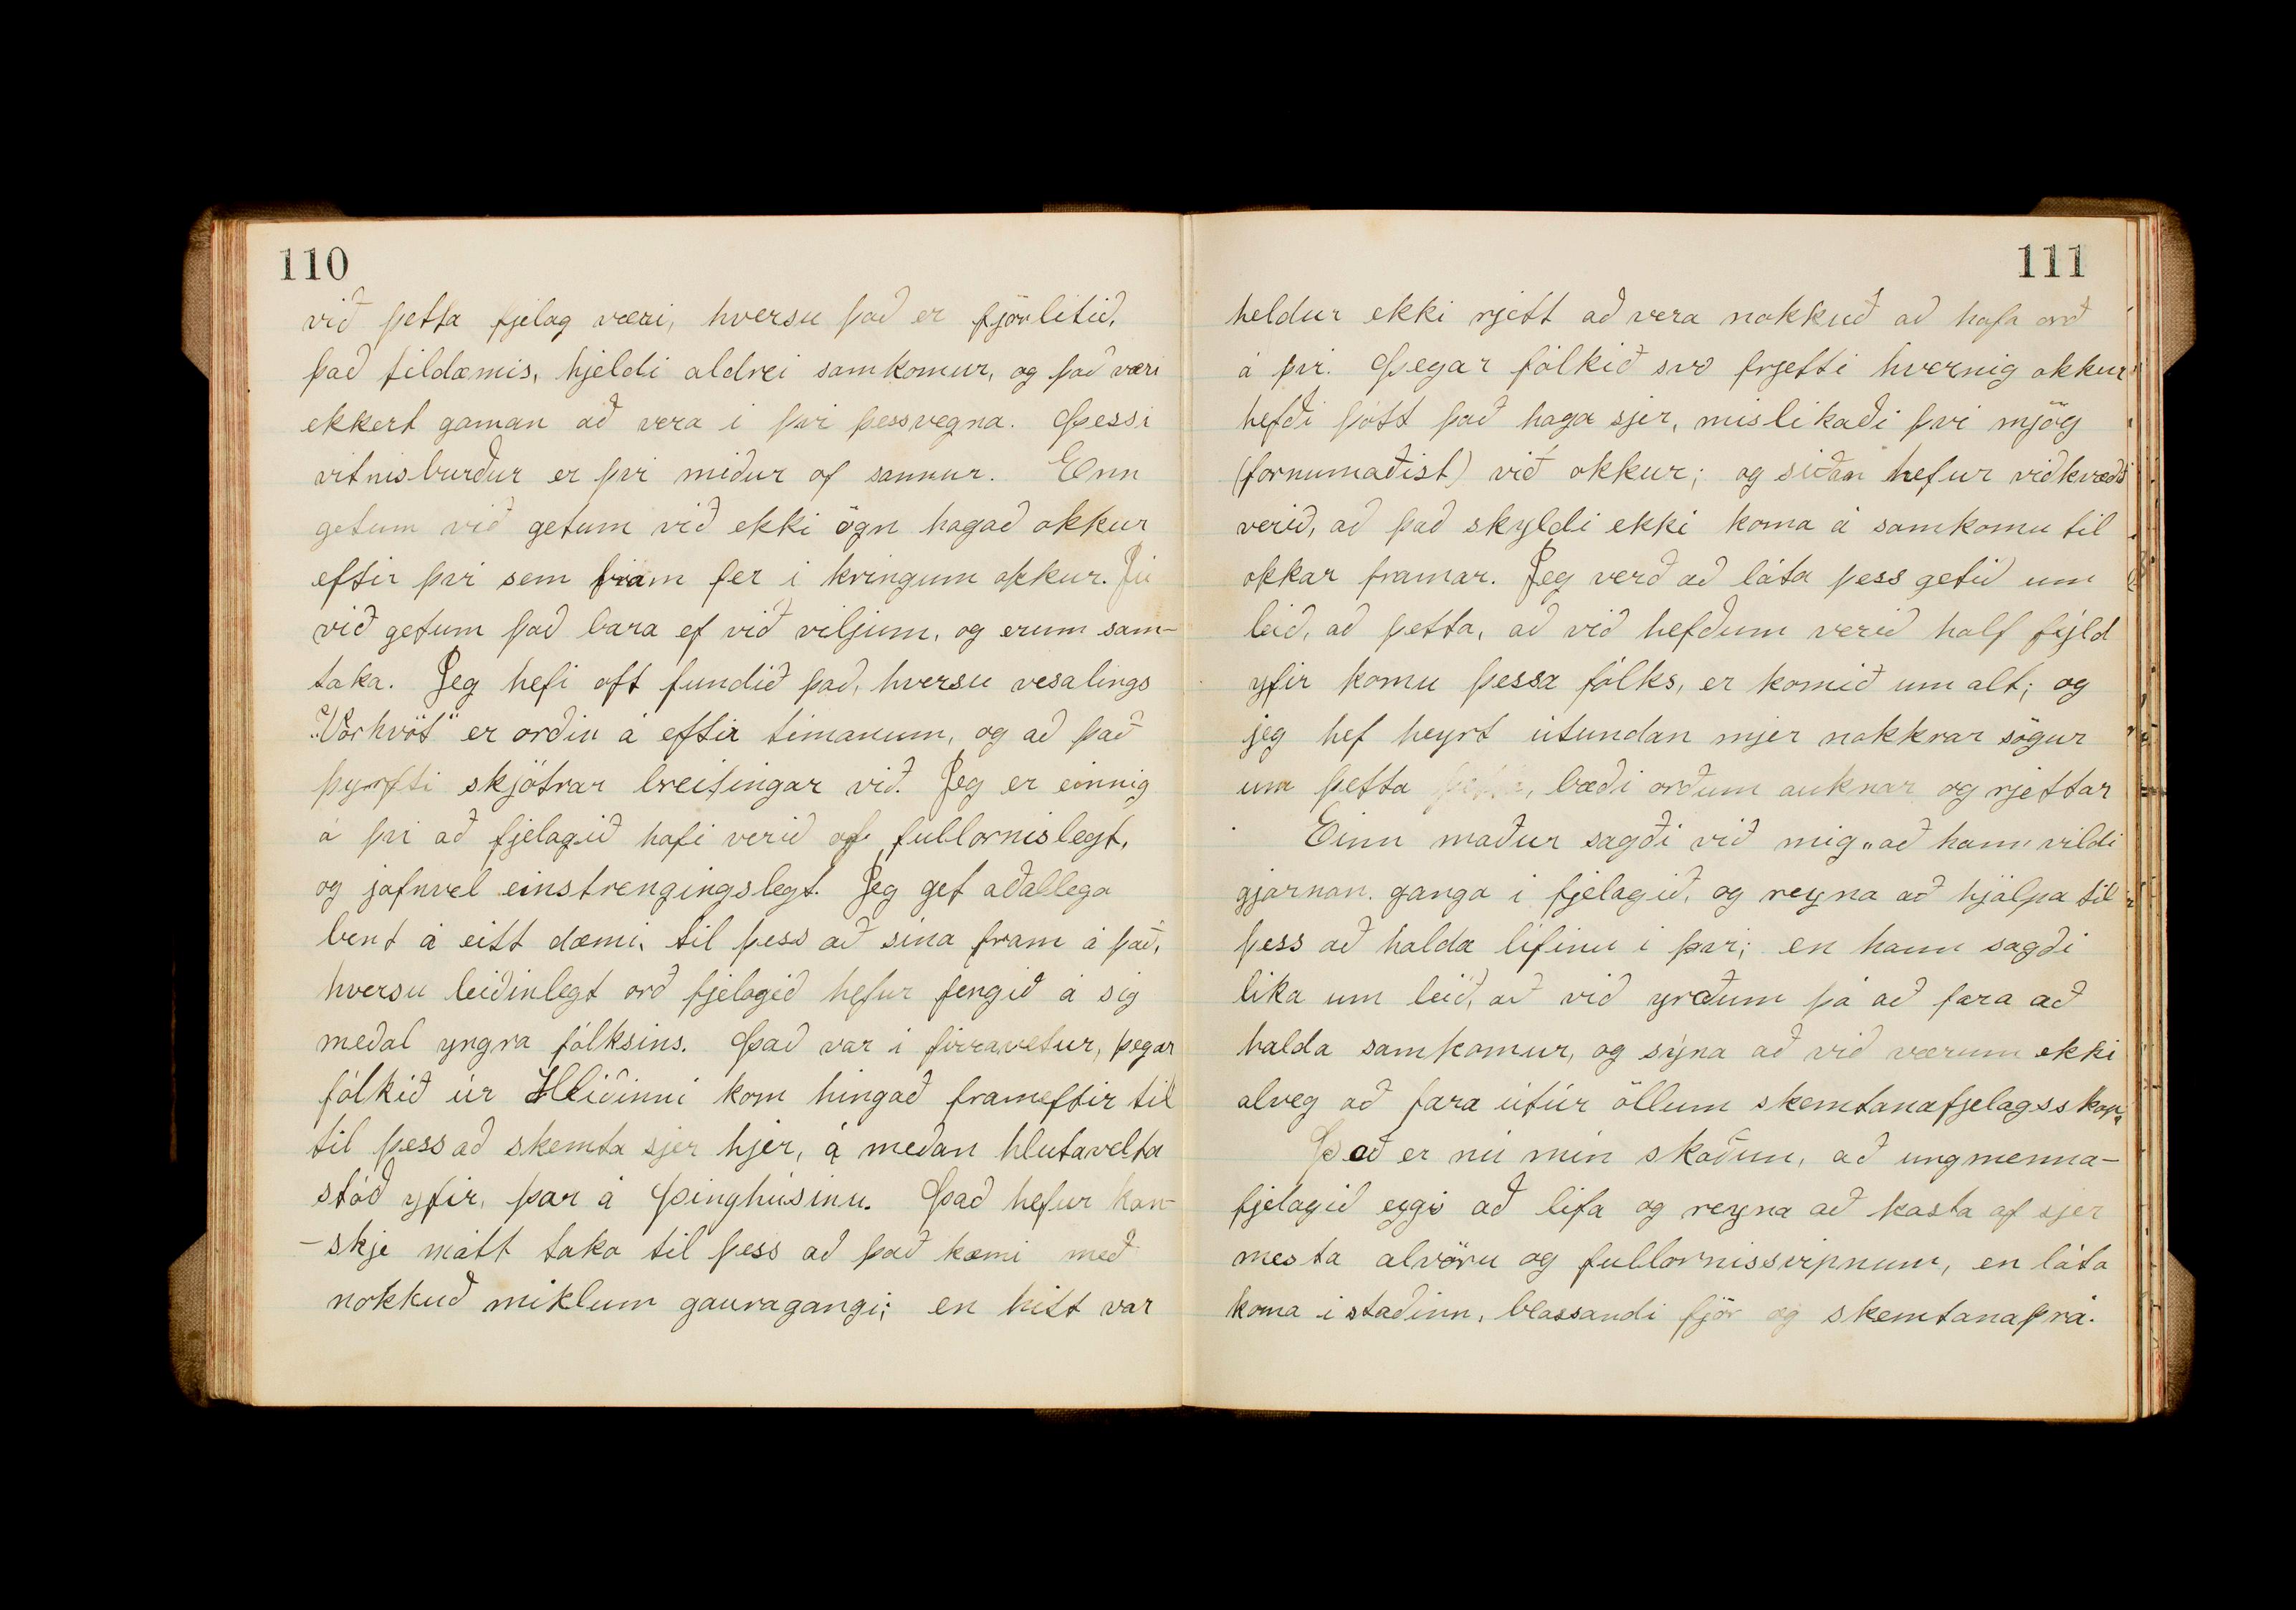 110
við þetta fjelag væri, hversu það er fjörlitið,
það tildæmis, hjeldi aldrei samkomur, og það væri
ekkert gaman að vera i þvi þessvegna. Þessi
vitnisburður er þvi miður of sannur. Enn
getum við getum við ekki ögn hagað okkur
eftir þvi sem fram fer i kringum okkur. Jú
við getum það bara ef við viljum, og erum sam-
taka. Jeg hefi oft fundið það, hversu vesalings
„Vorhvöt“ er orðin á eftir timanum, og að það
þyrfti skjótrar breitingar við. Jeg er einnig
á þvi að fjelagið hafi verið of fullornislegt,
og jafnvel einstrengingslegt. Jeg get aðallega
bent á eitt dæmi, til þess að sína fram á það,
hversu leiðinlegt orð fjelagið hefur fengið á sig
meðal yngra fólksins. Það var i firravetur, þegar
fólkið úr Hliðinni kom hingað frameftir til
til þess að skemta sjer hjer, á meðan hlutavelta
stóð yfir, þar á Þinghúsinu. Það hefur kan-
-skje mátt taka til þess að það kæmi með
nokkuð miklum gauragangi; en hitt var
111
heldur ekki rjett að vera nokkuð að hafa orð
á þvi. Þegar fólkið svo frjetti hvernig okkur
hefði þótt það haga sjer, mislikaði þvi mjög
(fornumaðist) við okkur; og siðan hefur viðkvæði
verið, að það skyldi ekki koma á samkomu til
okkar framar. Jeg verð að láta þess getið um
leið, að þetta, að við hefðum verið half fýld
yfir komu þessa fólks, er komið um alt; og
jeg hef heyrt útundan mjer nokkrar sögur
um þetta, bæði orðum auknar og rjettar
Einn maður sagði við mig „að hann vildi
gjarnan. ganga i fjelagið, og reyna að hjálpa til
þess að halda lífinu i þvi; en hann sagði
lika um leið, að við yrðum þá að fara að
halda samkomur, og sýna að við værum ekki
alveg að fara útúr öllum skemtanafjelagsskap“
Það er nú min skoðun, að ungmenna-
fjelagið eygi að lifa og reyna að kasta af sjer
mesta alvöru og fullornissvipnum, en láta
koma i staðinn, blassandi fjör og skemtanaþrá.